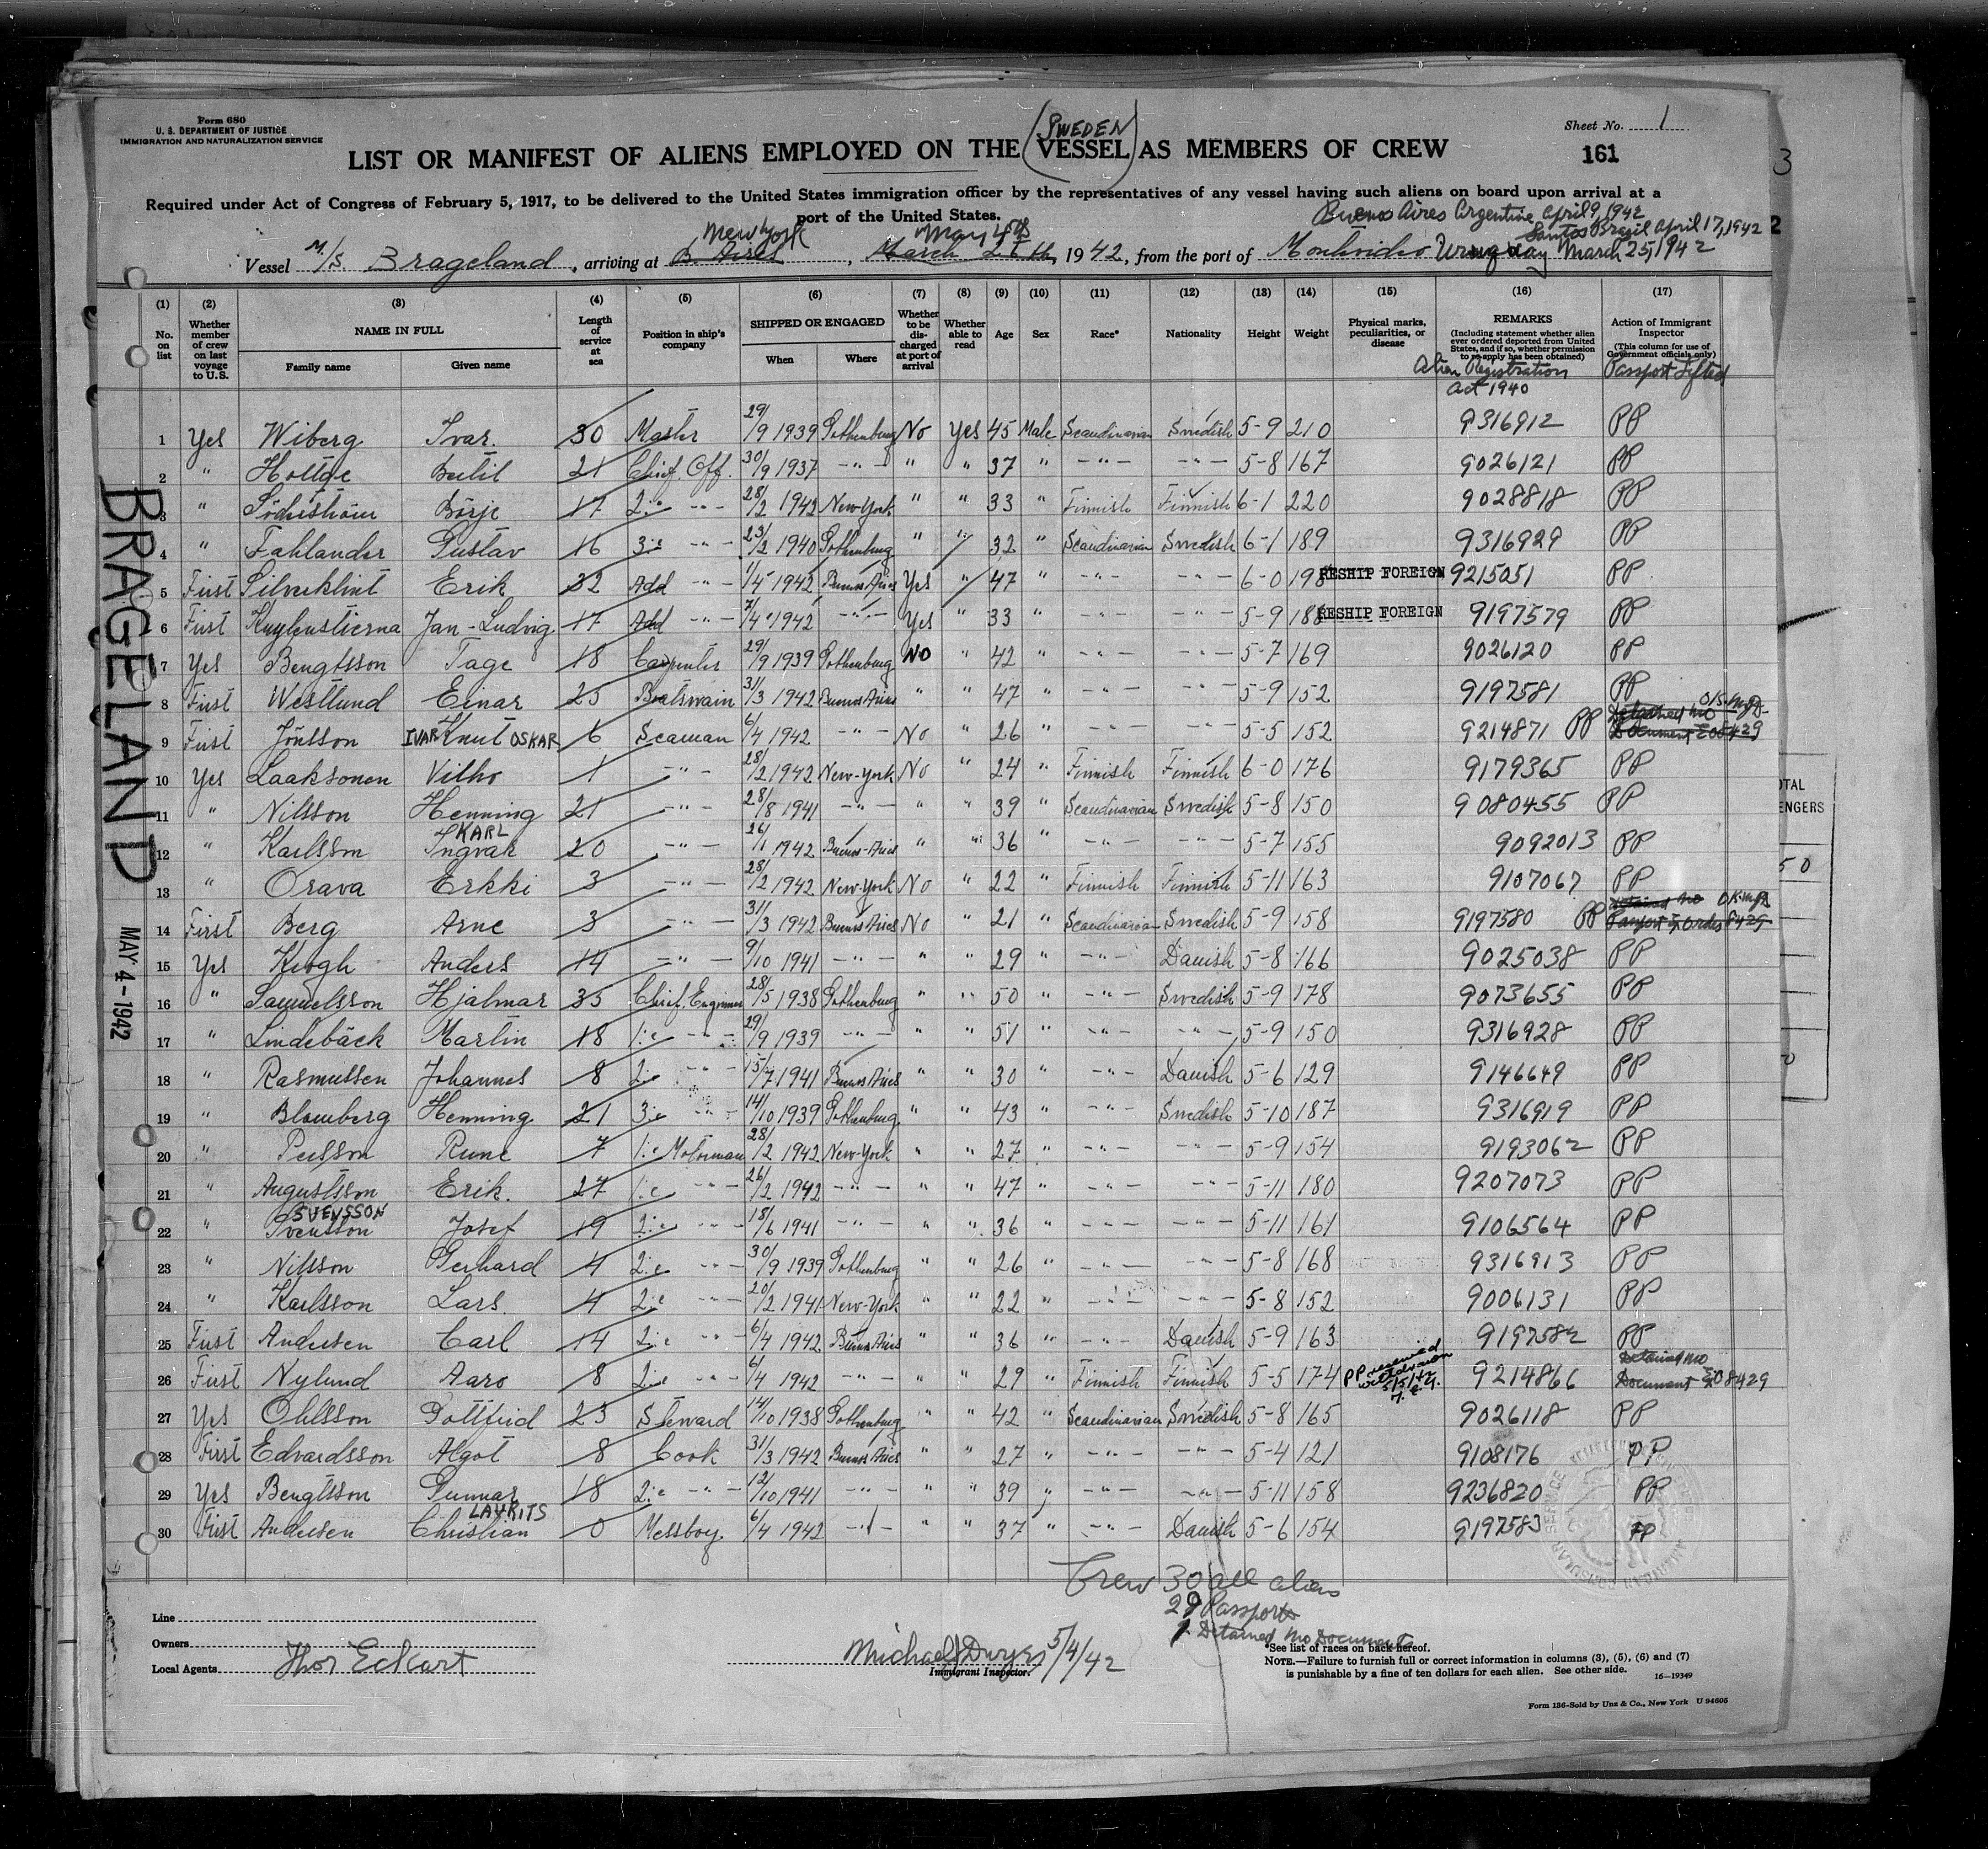 Form 680
U. S. DEPARTMENT OF JUSTICE
IMMIGRATION AND NATURALIZATION SERVICE
Sheet No. 1
(SWEDEN)
LIST OR MANIFEST OF ALIENS EMPLOYED ON THE VESSEL AS MEMBERS OF CREW
161
3
Required under Act of Congress of February 5, 1917, to be delivered to the United States immigration officer by the representatives of any vessel having such aliens on board upon arrival at a
port of the United States.
Buenos Aires Argentine April 9, 1942
Santos Brazil April 17, 1942
New York May 4th
Vessel M/S Brageland, arriving at B. Aires, March 25th, 1942, from the port of Montevideo Uruguay March 25, 1942
2
(1) (2) (3) (4) (5) (6) (7) (8) (9) (10) (11) (12) (13) (14) (15) (16) (17)
No. on list
Whether member of crew on last voyage to U.S.
NAME IN FULL
Family name Given name
Length of service at sea
Position in ship's company
SHIPPED OR ENGAGED
When Where
Whether to be discharged at port of arrival
Whether able to read
Age
Sex
Race*
Nationality
Height
Weight
Physical marks, peculiarities, or disease
REMARKS
(Including statement whether alien ever ordered deported from United States, and if so, whether permission to re-apply has been obtained)
Alien Registration Act 1940
Action of Immigrant Inspector
(This column for use of Government officials only)
Passport Lifted
1 Yes Wiberg Ivar. 30 Master 29/9 1939 Gothenburg No Yes 45 Male Scandinavian Swedish 5-9 210 9316912 PP
2 " Hottge Bertil 21 Chief. Off. 30/9 1937 -"- " " 37 " -"- -"- 5-8 167 9026121 PP
3 " Söderström Börje 17 2:e -"- 28/2 1942 New York " " 33 " Finnish Finnish 6-1 220 9028818 PP
4 " Fahlander Gustav 16 3:e -"- 23/2 1940 Gothenburg " " 32 " Scandinavian Swedish 6-1 189 9316929 PP
5 First Silverklint Erik 32 Add -"- 1/4 1942 Buenos Aires Yes " 47 " -"- -"- 6-0 198 RESHIP FOREIGN 9215051 PP
6 First Kuylenstierna Jan-Ludvig. 17 Add -"- 7/4 1942 -"- Yes " 33 " -"- -"- 5-9 188 RESHIP FOREIGN 9197579 PP
7 Yes Bengtsson Tage 18 Carpenter 29/9 1939 Gothenburg NO " 42 " -"- -"- 5-7 169 9026120 PP
8 First Westlund Einar 25 Boatswain 31/3 1942 Buenos Aires " " 47 " -"- -"- 5-9 152 9197581 PP
9 First Jönsson IVAR Knut OSKAR 6 Seaman 6/4 1942 -"- No " 26 " -"- -"- 5-5 152 9214871 PP Detained no Document
10 Yes Laaksonen Vilho 1 -"- 28/2 1942 New-York No " 24 " Finnish Finnish 6-0 176 9179365 PP
11 " Nilsson Henning 21 -"- 28/8 1941 -"- " " 39 " Scandinavian Swedish 5-8 150 9080455 PP
12 " Karlsson KARL Ingvar 20 -"- 26/1 1942 Buenos-Aires " " 36 " -"- -"- 5-7 155 9092013 PP
13 " Orava Erkki 3 -"- 28/2 1942 New-York No " 22 " Finnish Finnish 5-11 163 9107067 PP
14 First Berg Arne 3 -"- 31/3 1942 Buenos Aires No " 21 " Scandinavian Swedish 5-9 158 9197580 PP Detained no Passport
15 Yes Krogh Anders 14 -"- 9/10 1941 -"- " " 29 " -"- Danish 5-8 166 9025038 PP
16 " Samuelsson Hjalmar 35 Chief. Engineer 28/5 1938 Gothenburg " " 50 " -"- Swedish 5-9 178 9073655 PP
17 " Lindebäck Martin 18 1:e -"- 29/9 1939 -"- " " 51 " -"- -"- 5-9 150 9316928 PP
18 " Rasmussen Johannes 8 2:e -"- 15/7 1941 Buenos Aires " " 30 " -"- Danish 5-6 129 9146649 PP
19 " Blomberg Henning 21 3:e -"- 14/10 1939 Gothenburg " " 43 " -"- Swedish 5-10 187 9316919 PP
20 " Persson Rune 7 1:e Motorman 28/2 1942 New-York " " 27 " -"- -"- 5-9 154 9193062 PP
21 " Augustsson Erik. 27 1:e -"- 26/2 1942 -"- " " 47 " -"- -"- 5-11 180 9207073 PP
22 " SVENSSON Svensson Josef 19 2:e -"- 18/6 1941 -"- " " 36 " -"- -"- 5-11 161 9106564 PP
23 " Nilsson Gerhard 4 2:e -"- 30/9 1939 Gothenburg " " 26 " -"- -"- 5-8 168 9316913 PP
24 " Karlsson Lars. 4 2:e -"- 20/2 1941 New-York " " 22 " -"- -"- 5-8 152 9006131 PP
25 First Andersen Carl 14 2:e -"- 6/4 1942 Buenos Aires " " 36 " -"- Danish 5-9 163 9197582 PP
26 First Nylund Aaro 8 2:e -"- 6/4 1942 -"- " " 29 " Finnish Finnish 5-5 174 PP received 9214866 Detained no Document
27 Yes Ohlsson Gottfrid 23 Steward 14/10 1938 Gothenburg " " 42 " Scandinavian Swedish 5-8 165 9026118 PP
28 First Edvardsson Algot 8 Cook 31/3 1942 Buenos Aires " " 27 " -"- -"- 5-4 121 9108176 PP
29 Yes Bengtsson Gunnar 18 2:e -"- 12/10 1941 -"- " " 39 " -"- -"- 5-11 158 9236820 PP
30 First Andersen LAURITS Christian 0 Messboy. 6/4 1942 -"- " " 37 " -"- Danish 5-6 154 9197583 PP
BRAGELAND
MAY 4-1942
OTAL
ENGERS
50
Crew 30 all aliens
29 Passports
1 Detained no Documents
Line
Owners
Local Agents Thor Eckert
Michael J Dwyer 5/4/42
Immigrant Inspector.
*See list of races on back hereof.
NOTE.—Failure to furnish full or correct information in columns (3), (5), (6) and (7)
is punishable by a fine of ten dollars for each alien. See other side. 16—19349
Form 136-Sold by Unz & Co., New York U 94605